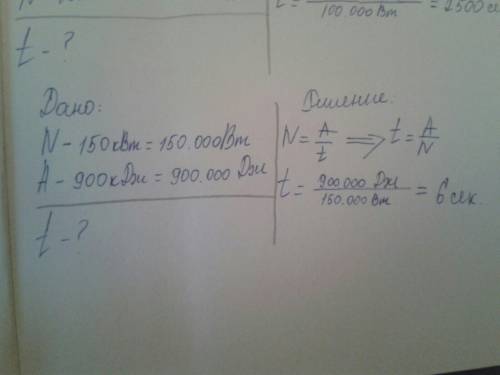 100.000 Вт = 2500 се
t - ?
Дано:
N - 150 кВт = 150.000 Вт
A - 900 кДж = 900.000 Дж
t - ?
Решение:
N = A/t ⟹ t = A/N
t = 900.000 Дж/150.000 Вт = 6 сек.